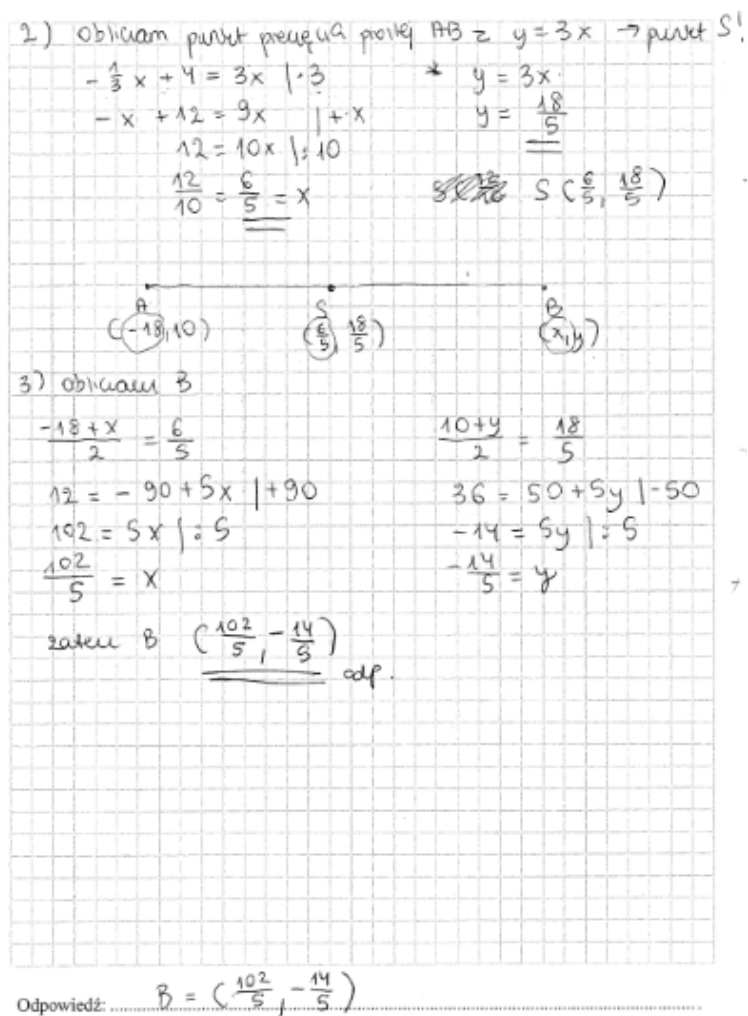 2) Obliczam punkt przecięcia prostej AB z y = 3x → punkt S!
-1/3 x + 4 = 3x |·3
-x + 12 = 9x |+x
12 = 10x |:10
12/10 = 6/5 = x
* y = 3x
y = 18/5
S (6/5, 18/5)
A S B
(-18, 10) (6/5, 18/5) (x, y)
3) obliczam B
(-18 + x)/2 = 6/5
12 = -90 + 5x |+90
102 = 5x |:5
102/5 = x
(10 + y)/2 = 18/5
36 = 50 + 5y |-50
-14 = 5y |:5
-14/5 = y
zatem B (102/5, -14/5) odp.
Odpowiedź: B = (102/5, -14/5)